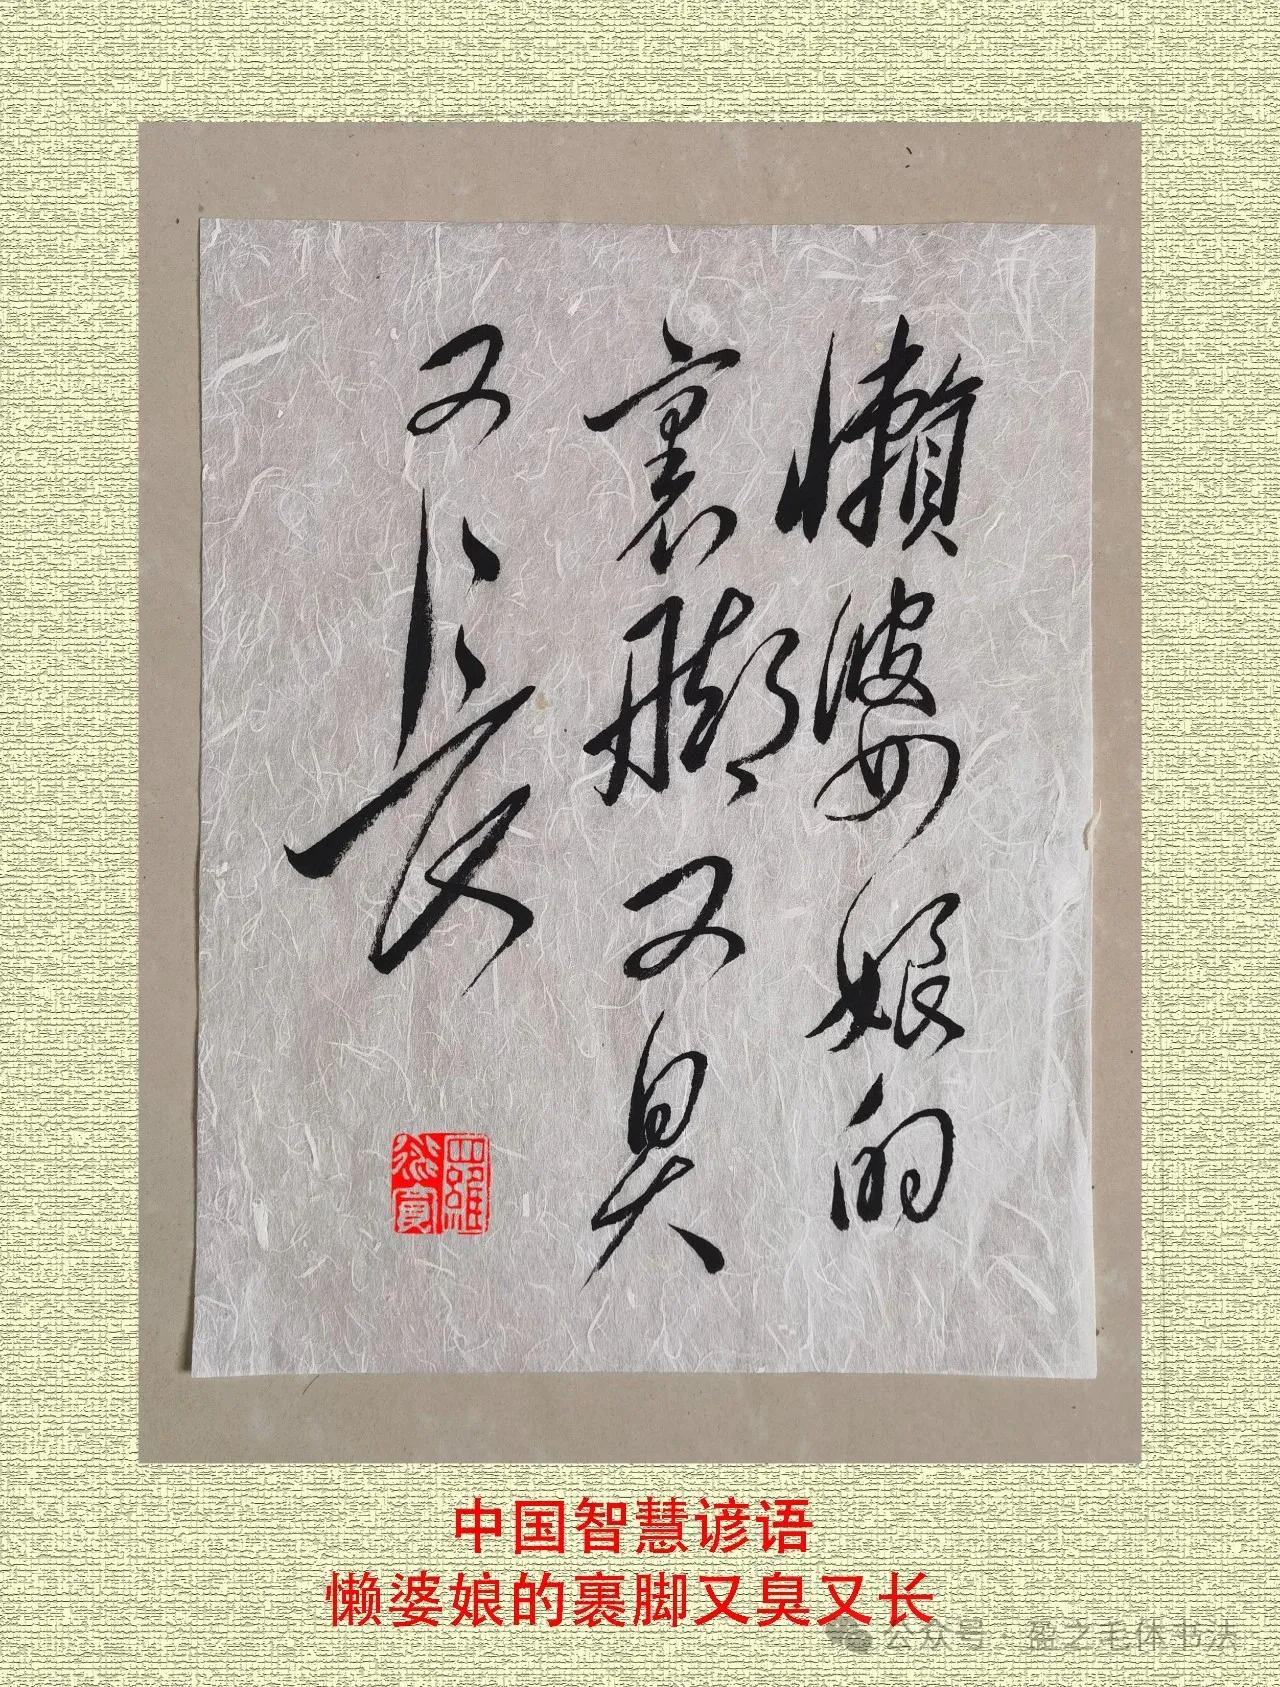 懒婆娘的
裹脚又臭
又長
中国智慧谚语
懒婆娘的裹脚又臭又长
公众号·盈之毛体书法